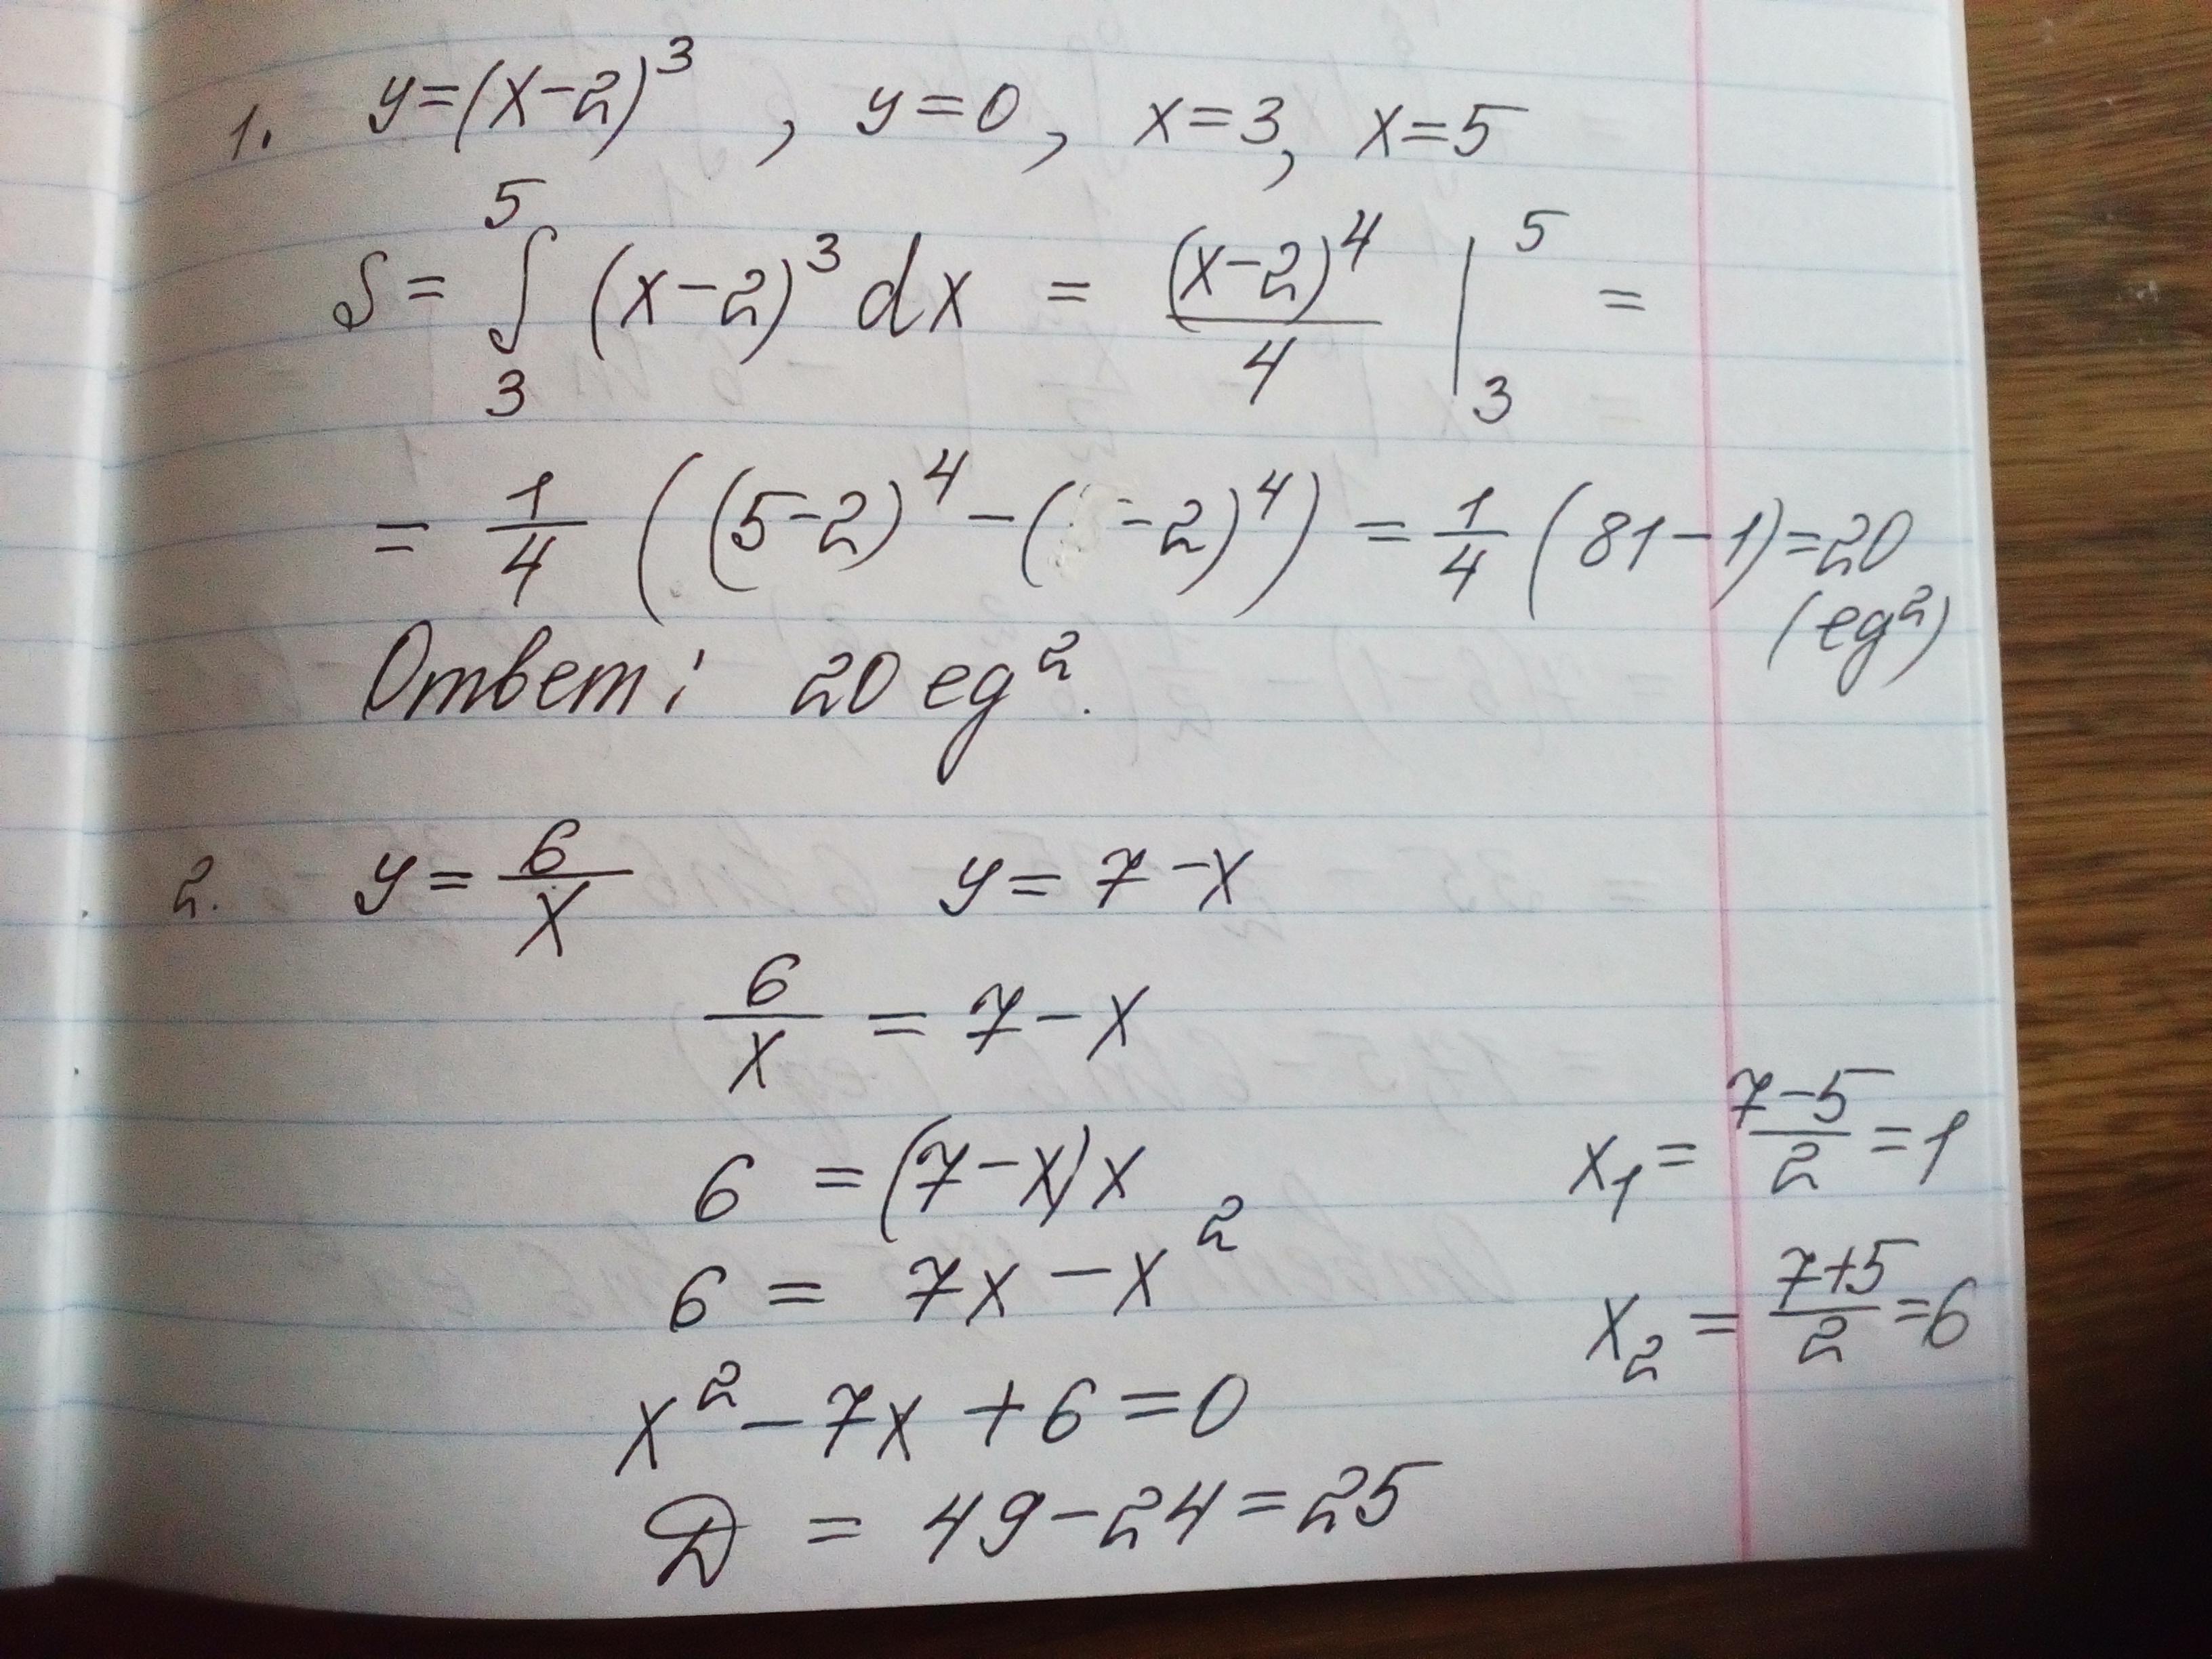 1. y=(x-2)³, y=0, x=3, x=5
S = ∫₃⁵ (x-2)³dx = (x-2)⁴/4 |₃⁵ =
= 1/4 ((5-2)⁴-( -2)⁴) = 1/4 (81-1)=20
(ед²)
Ответ: 20 ед².
2. y= 6/x y= 7-x
6/x = 7-x
6 = (7-x)x
6 = 7x-x²
x²-7x+6=0
D = 49-24=25
x₁= (7-5)/2 =1
x₂= (7+5)/2 =6